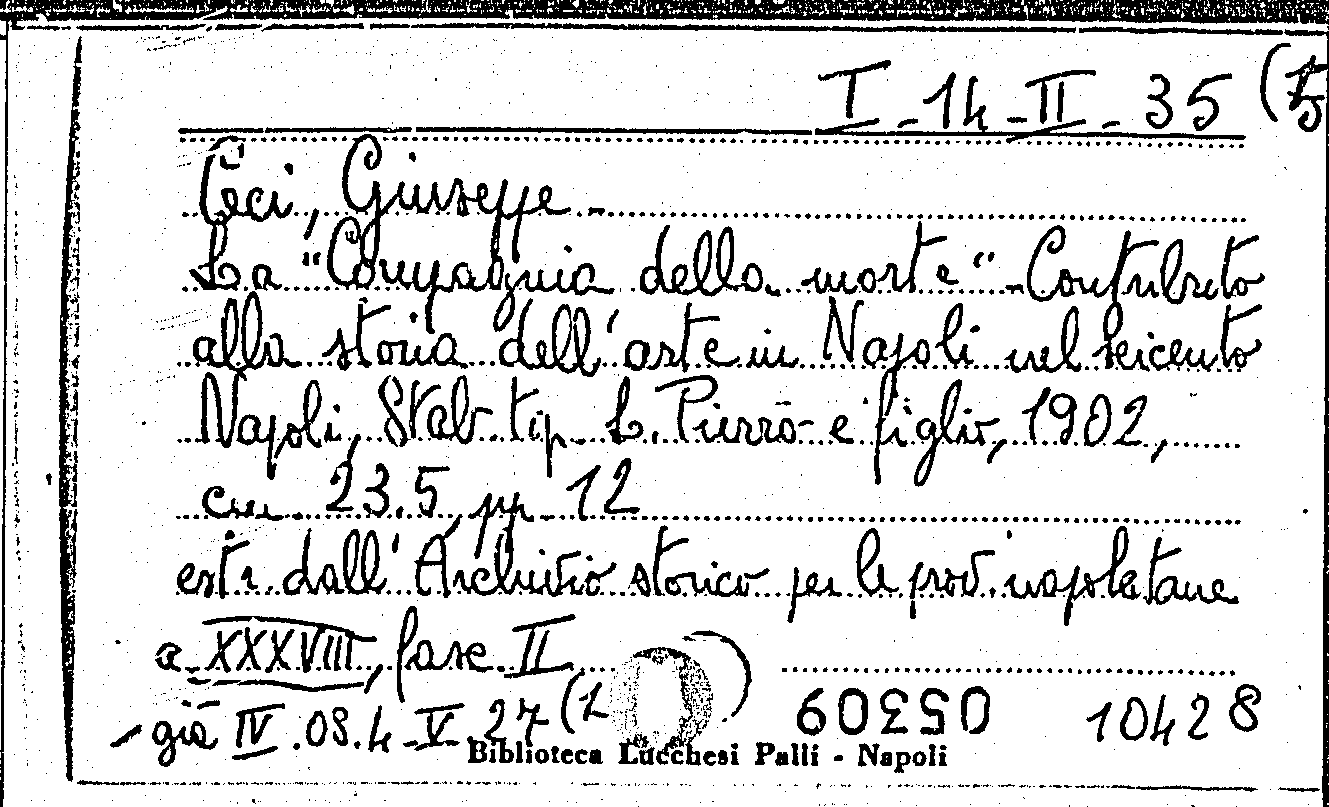 I - 14 - II - 35 (5
Ceci, Giuseppe -
La "Compagnia della morte" - Contributo
alla storia dell'arte in Napoli nel seicento
Napoli, Stab. tip. L. Pierro e figlio, 1902,
cm. 23.5, pp. 12
estr. dall'Archivio storico per le prov. napoletane
a. XXXVIII, fasc. II
- già IV. 08. 4 - V. 27 (1 )
05309 10428
Biblioteca Lucchesi Palli - Napoli